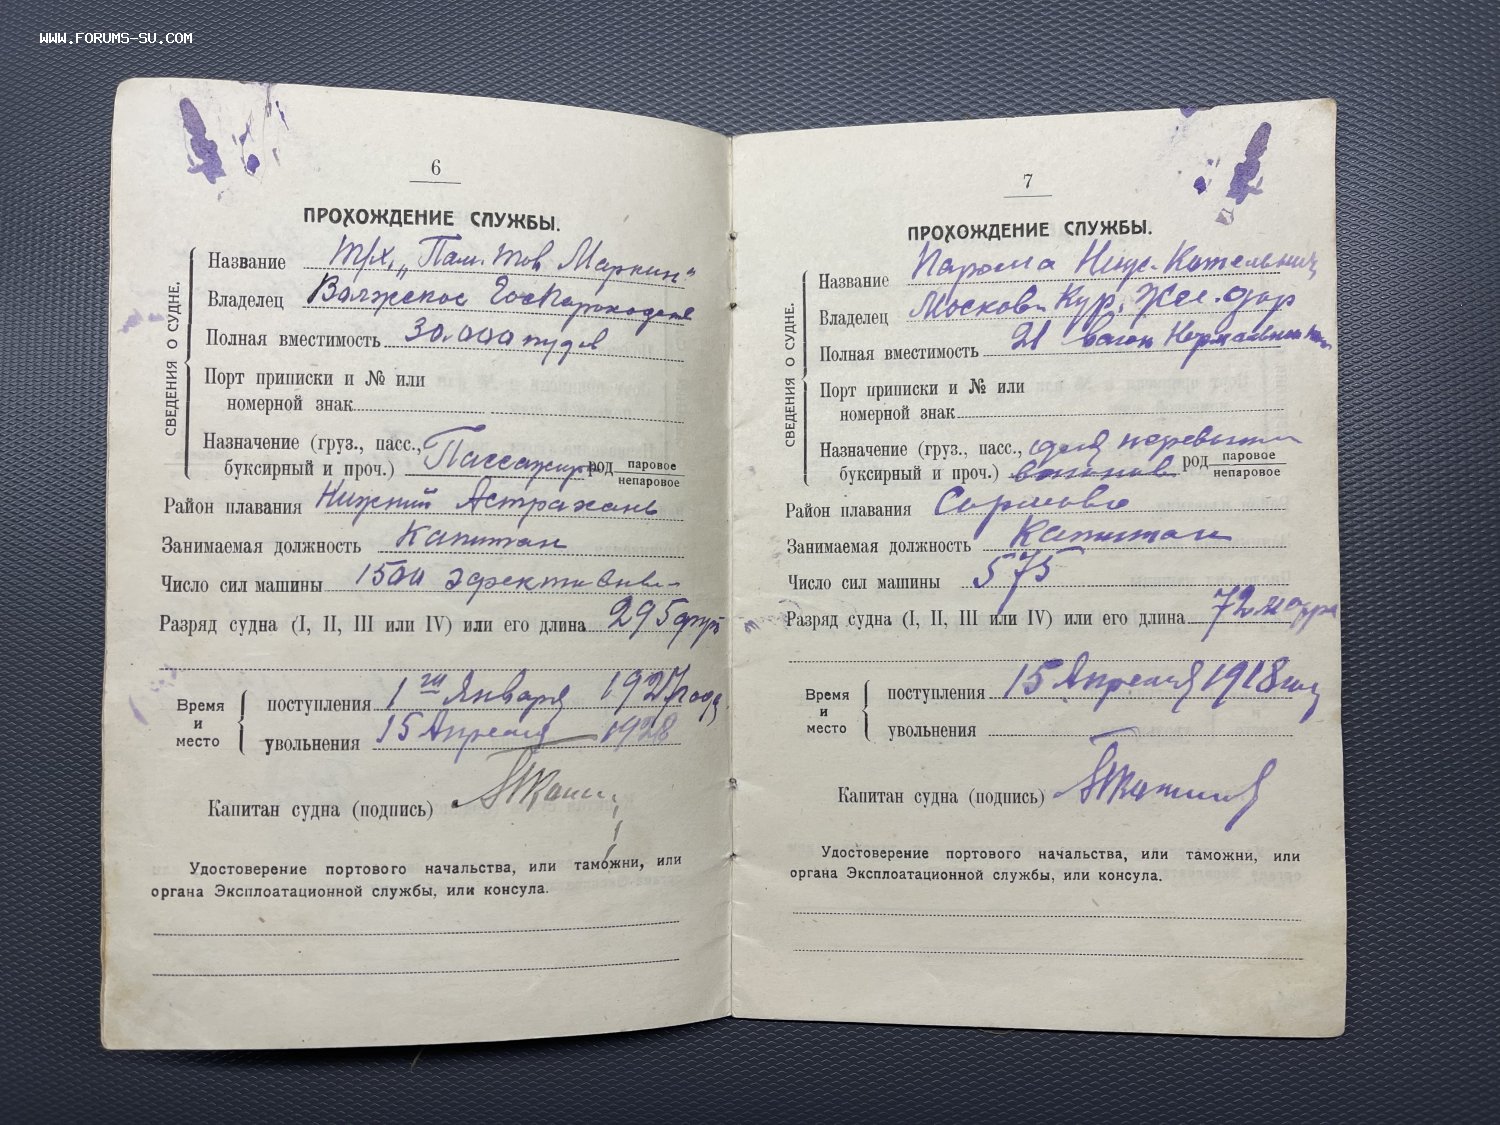 WWW.FORUMS-SU.COM
6
ПРОХОЖДЕНИЕ СЛУЖБЫ.
СВЕДЕНИЯ О СУДНЕ.
Название т/х. „Пам. тов. Маркин"
Владелец Волжское Госпароходств
Полная вместимость 30.000 пудов
Порт приписки и № или
номерной знак
Назначение (груз., пасс.,
буксирный и проч.) Пассажир род паровое
непаровое
Район плавания Нижний Астрахань
Занимаемая должность Капитан
Число сил машины 1500
Разряд судна (I, II, III или IV) или его длина 295 фут
Время
и
место
поступления 1го Января 1927 года
увольнения 15 Апреля 1928
Капитан судна (подпись)
Удостоверение портового начальства, или таможни, или
органа Эксплоатационной службы, или консула.
7
ПРОХОЖДЕНИЕ СЛУЖБЫ.
СВЕДЕНИЯ О СУДНЕ.
Название Парома
Владелец Москов. Кур. Жел. дор
Полная вместимость 21 вагон
Порт приписки и № или
номерной знак
Назначение (груз., пасс., для
буксирный и проч.) вагонов род паровое
непаровое
Район плавания Сормово
Занимаемая должность Капитан
Число сил машины 575
Разряд судна (I, II, III или IV) или его длина 72
Время
и
место
поступления 15 Апреля 1918
увольнения
Капитан судна (подпись)
Удостоверение портового начальства, или таможни, или
органа Эксплоатационной службы, или консула.